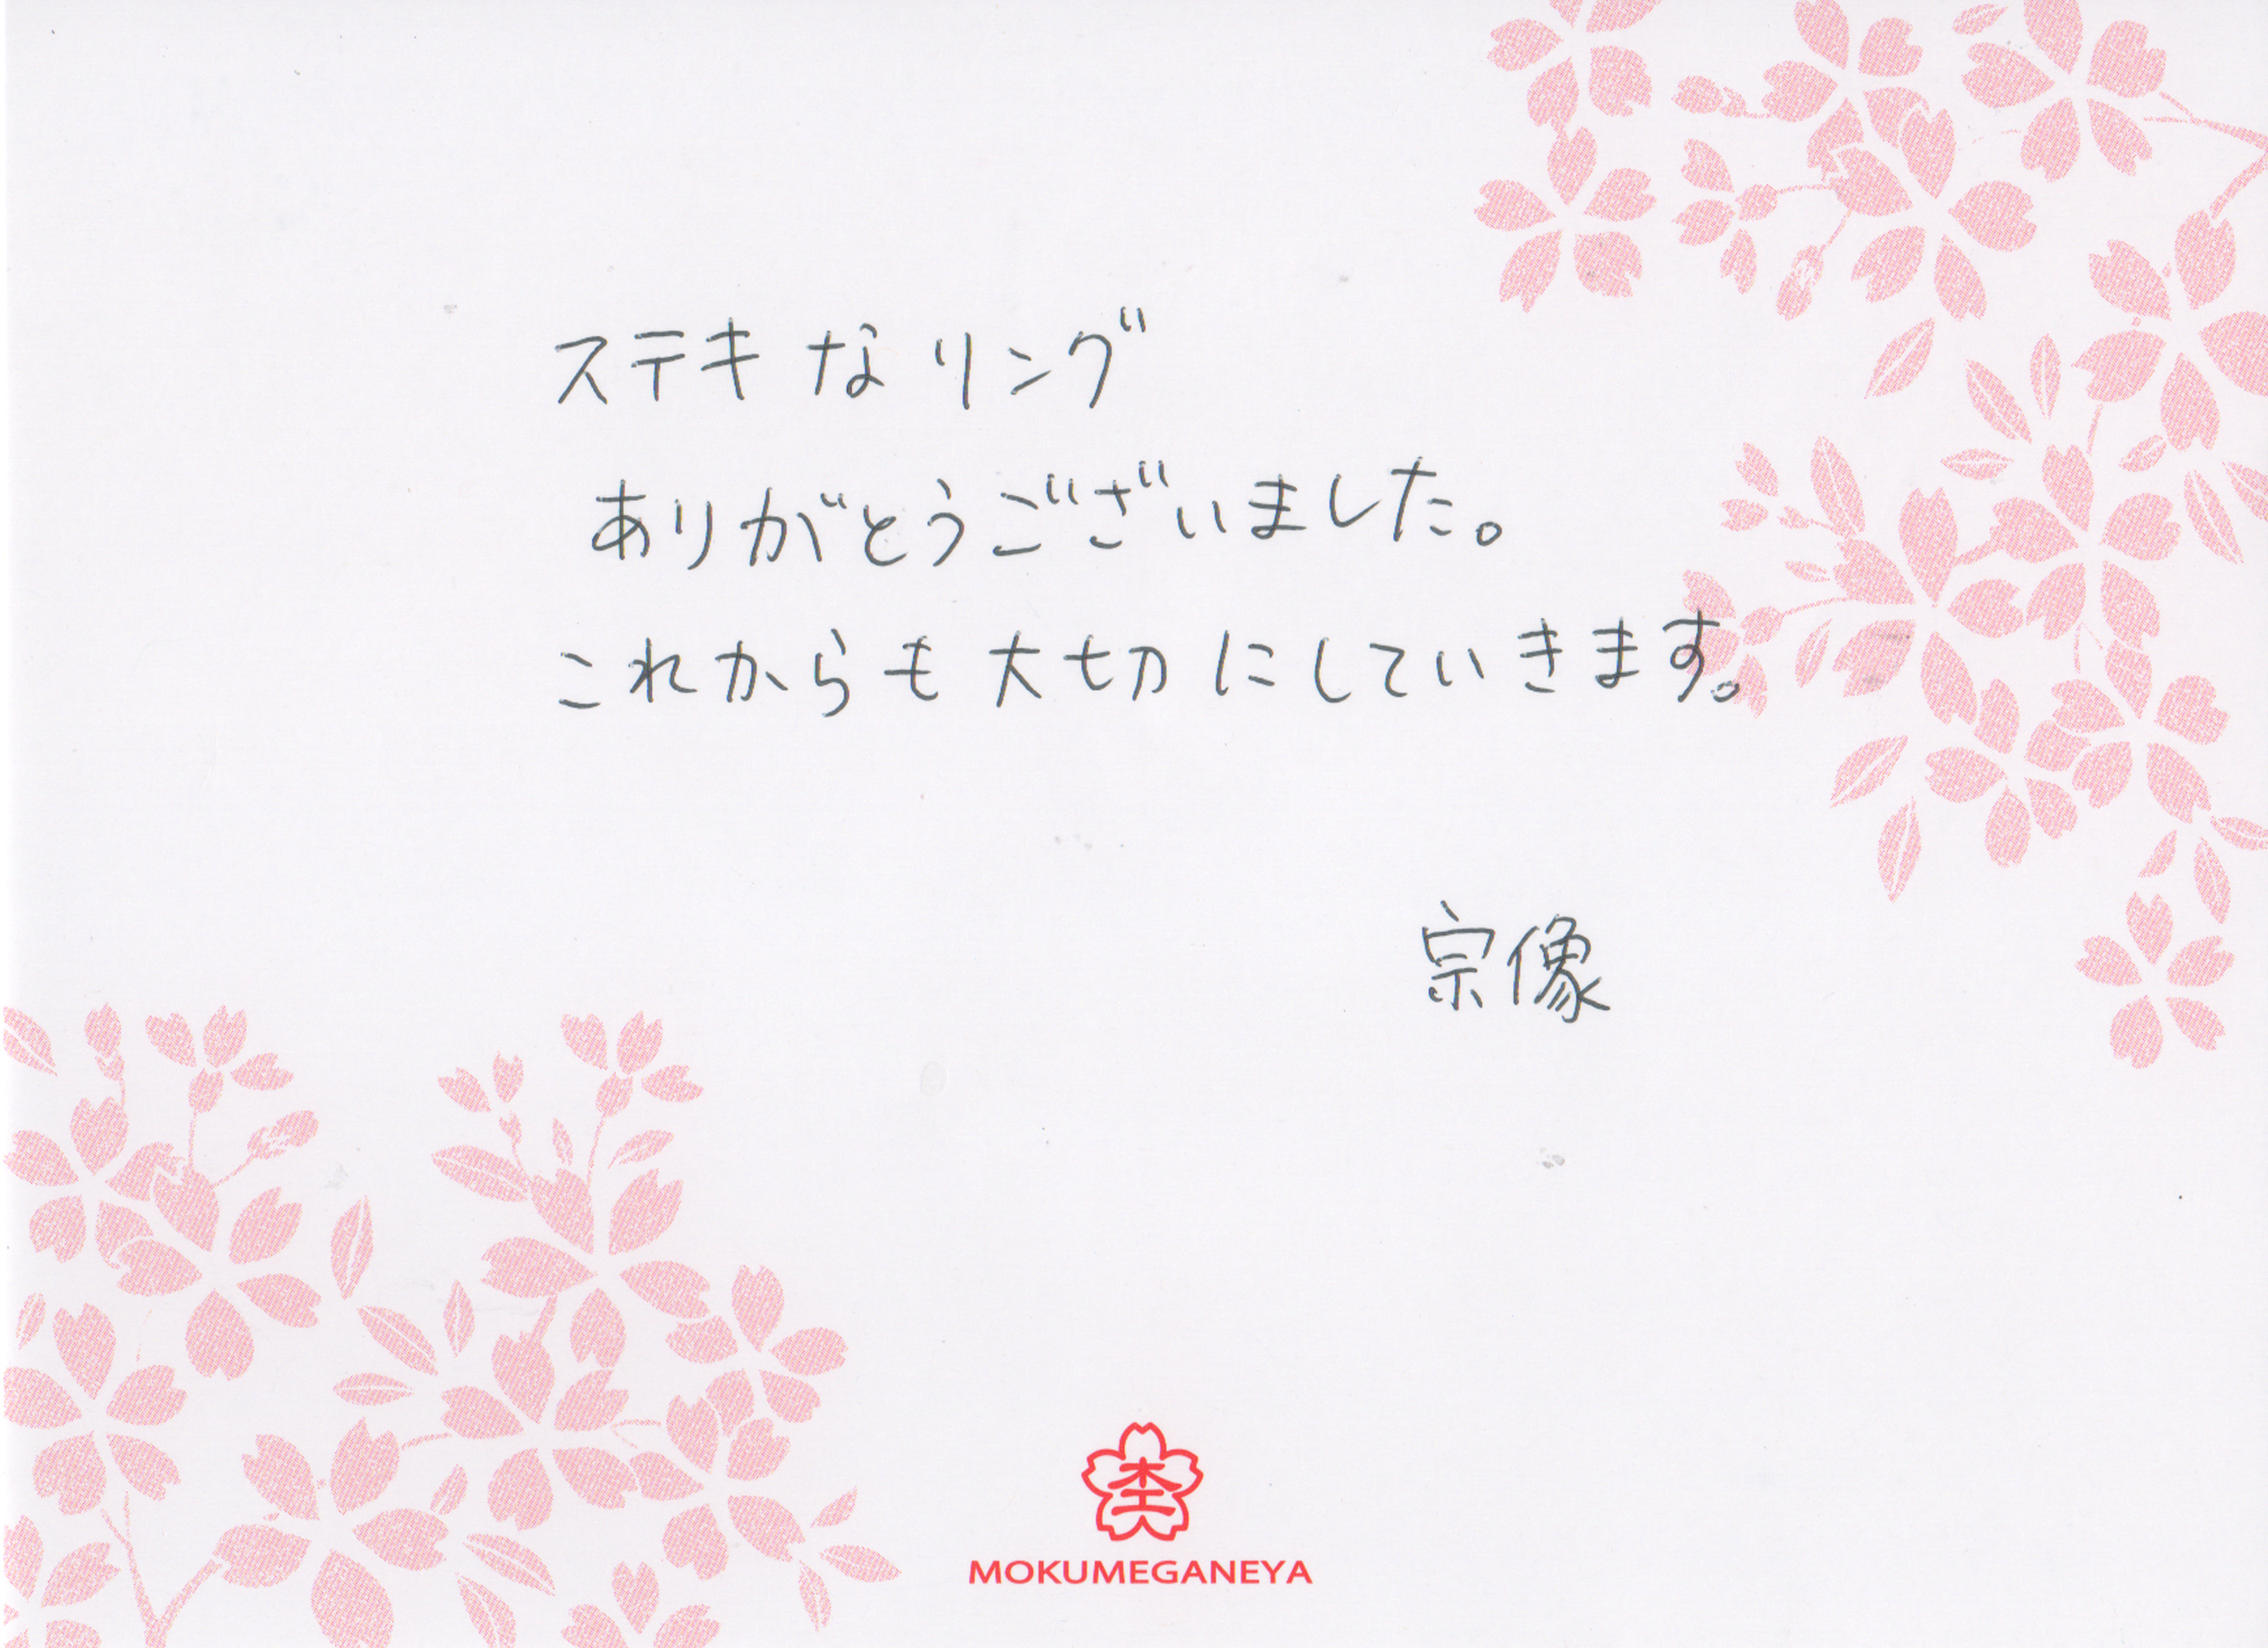 ステキなリング
ありがとうございました。
これからも大切にしていきます。
宗像
杢
MOKUMEGANEYA